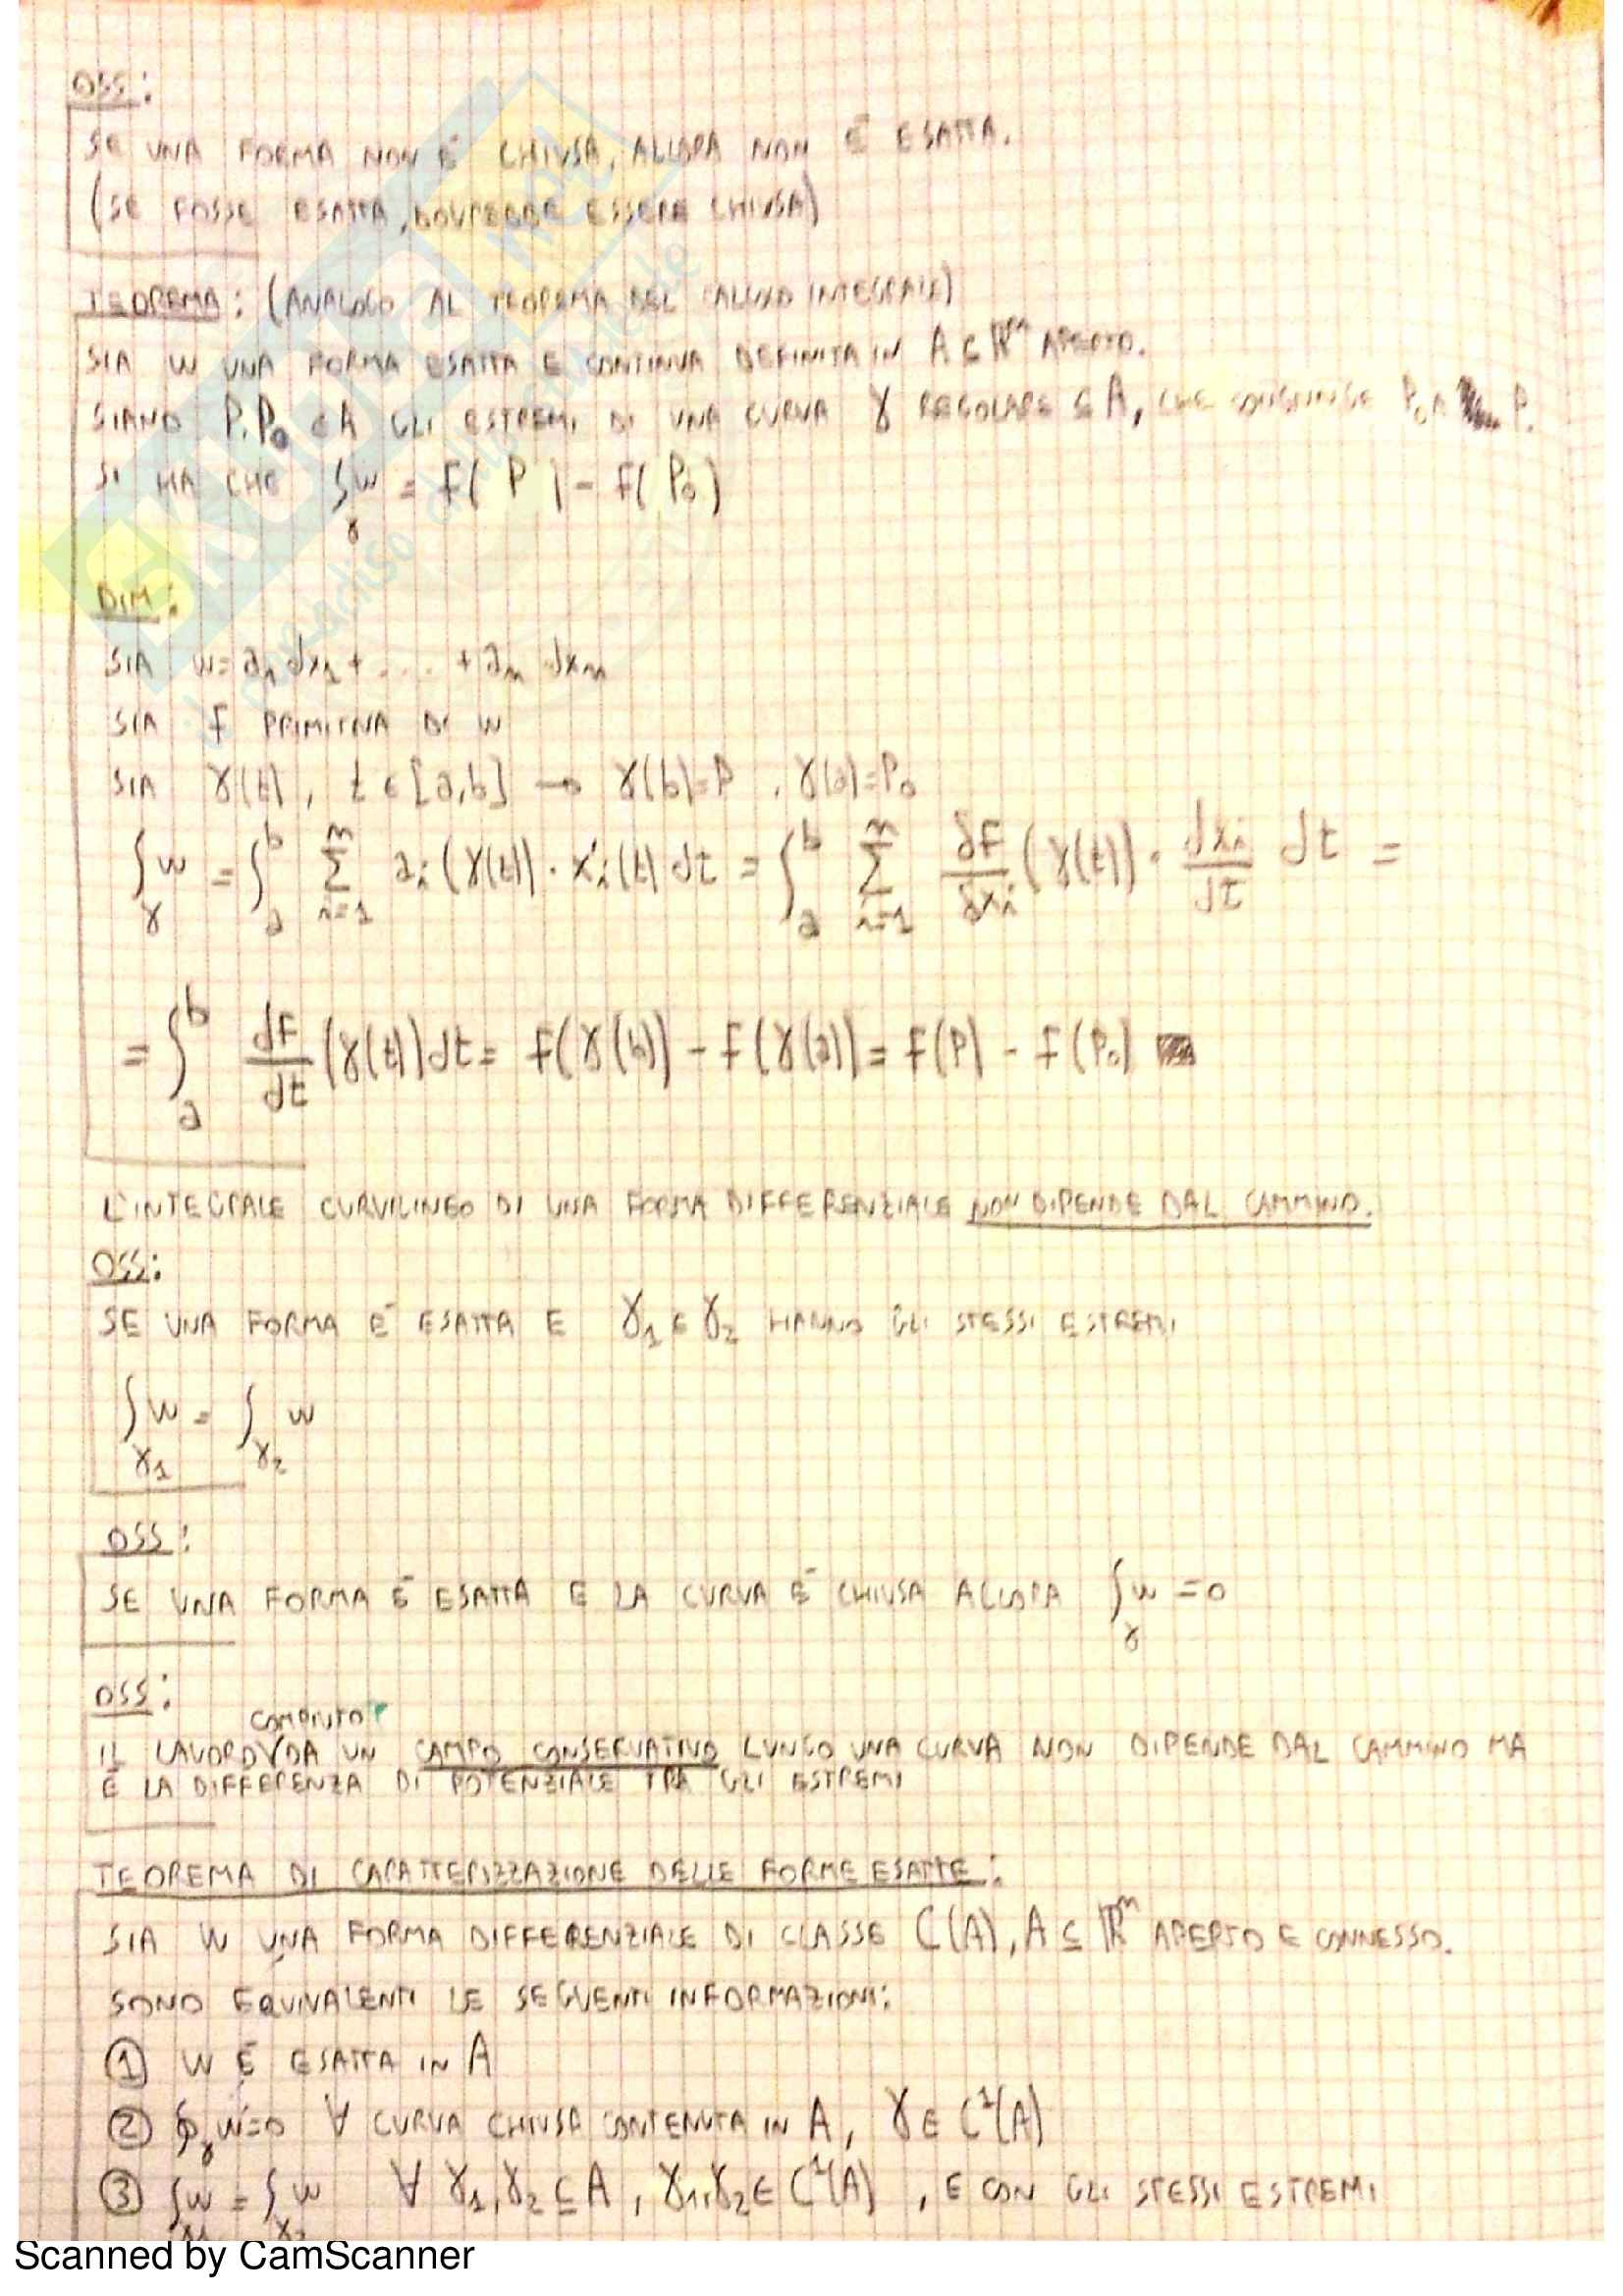 OSS:
SE UNA FORMA NON È CHIUSA, ALLORA NON È ESATTA.
(SE FOSSE ESATTA, DOVREBBE ESSERE CHIUSA)
TEOREMA: (ANALOGO AL TEOREMA DEL CALCOLO INTEGRALE)
SIA W UNA FORMA ESATTA E CONTINUA DEFINITA IN A ⊆ ℝⁿ APERTO.
SIANO P, P₀ ∈ A GLI ESTREMI DI UNA CURVA γ REGOLARE ⊆ A, CHE CONGIUNGE P₀ A P.
SI HA CHE ∫_γ W = F(P) - F(P₀)
DIM:
SIA W = a₁ dx₁ + .... + aₙ dxₙ
SIA F PRIMITIVA DI W
SIA γ(t), t ∈ [a,b] → γ(b)=P, γ(a)=P₀
∫_γ W = ∫_a^b Σ_{i=1}^n aᵢ(γ(t)) · x'ᵢ(t) dt = ∫_a^b Σ_{i=1}^n δF/δxᵢ (γ(t)) · dxᵢ/dt dt =
= ∫_a^b dF/dt (γ(t)) dt = F(γ(b)) - F(γ(a)) = F(P) - F(P₀)
L'INTEGRALE CURVILINEO DI UNA FORMA DIFFERENZIALE NON DIPENDE DAL CAMMINO.
OSS:
SE UNA FORMA È ESATTA E γ₁ E γ₂ HANNO GLI STESSI ESTREMI
∫_γ₁ W = ∫_γ₂ W
OSS:
SE UNA FORMA È ESATTA E LA CURVA È CHIUSA ALLORA ∫_γ W = 0
OSS:
COMPIUTO
IL LAVORO DA UN CAMPO CONSERVATIVO LUNGO UNA CURVA NON DIPENDE DAL CAMMINO MA
È LA DIFFERENZA DI POTENZIALE TRA GLI ESTREMI
TEOREMA DI CARATTERIZZAZIONE DELLE FORME ESATTE:
SIA W UNA FORMA DIFFERENZIALE DI CLASSE C(A), A ⊆ ℝⁿ APERTO E CONNESSO.
SONO EQUIVALENTI LE SEGUENTI INFORMAZIONI:
① W È ESATTA IN A
② ∮_γ W=0 ∀ CURVA CHIUSA CONTENUTA IN A, γ ∈ C¹(A)
③ ∫_γ₁ W = ∫_γ₂ W ∀ γ₁,γ₂ ⊆ A, γ₁,γ₂ ∈ C¹(A), E CON GLI STESSI ESTREMI
Scanned by CamScanner